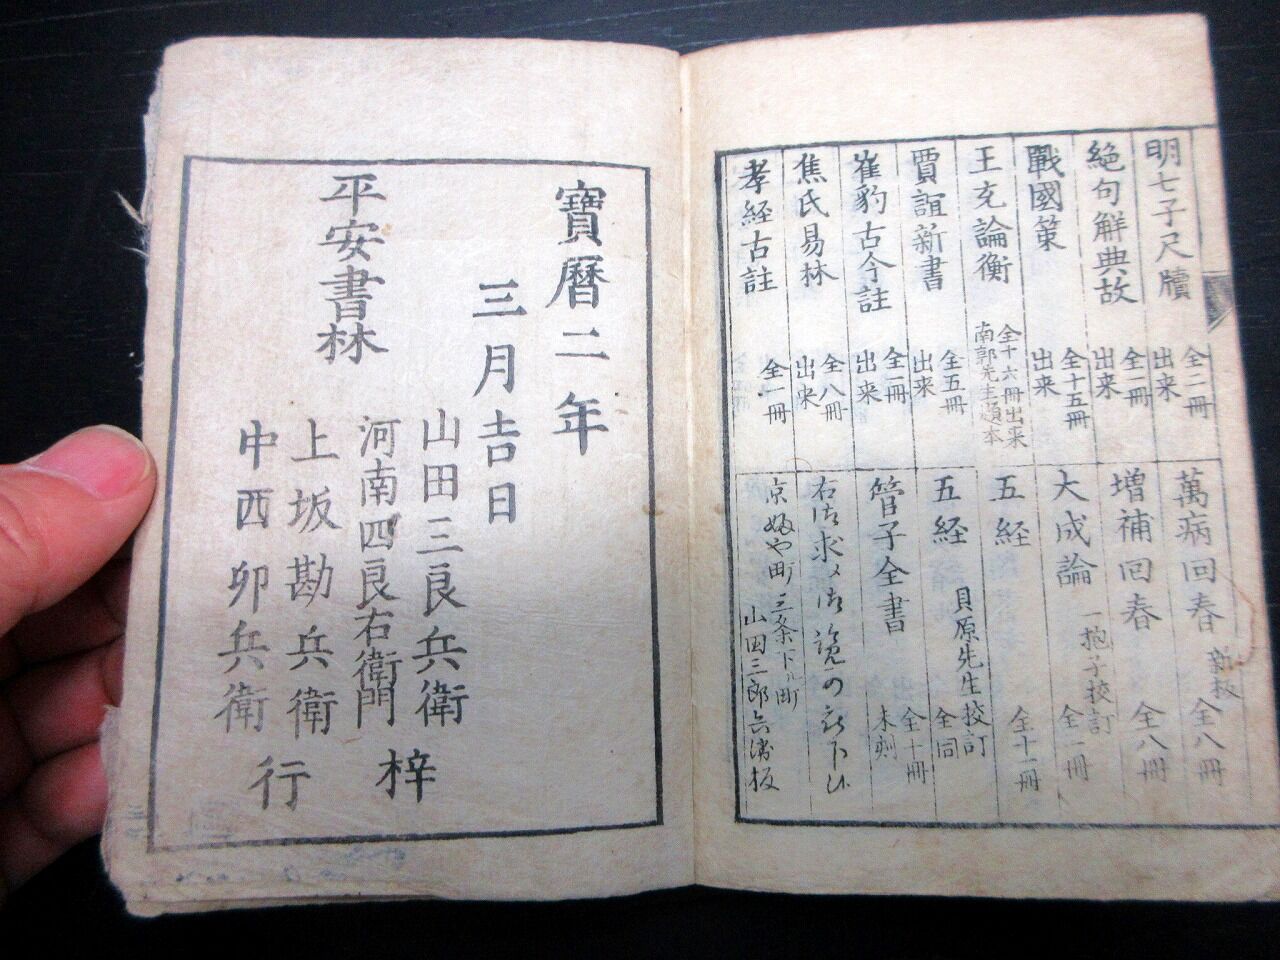 明七子尺牘 全二冊 出来
絶句解典故 全一冊 出来
戰國策 全十五冊 出来
王充論衡 全十六冊出来 南郭先生題本
賈誼新書 全五冊 出来
崔豹古今註 全一冊 出来
焦氏易林 全八冊 出来
孝経古註 全一冊
萬病回春 新板 全八冊
増補回春 全八冊
大成論 一抱子校訂 全一冊
五経 全十一冊
五経 貝原先生校訂 全同
管子全書 全十冊 未刻
右御求メ御覧可被下候
京ふや町三条下ル町
山田三郎兵衛板
寶曆二年
三月吉日
平安書林
山田三良兵衛
河南四良右衛門
上坂勘兵衛
中西卯兵衛
梓
行